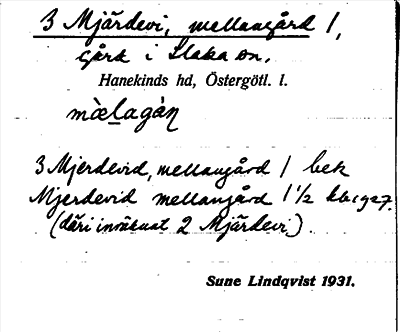 3 Mjärdevi, mellangård 1,
gård i Slaka sn.
Hanekinds hd, Östergötl. l.
mæ̀lagàn
3 Mjerdevid, mellangård 1 bek
Mjerdevid mellangård 1 1/2 kb 1927.
(däri inräknat 2 Mjärdevi).
Sune Lindqvist 1931.